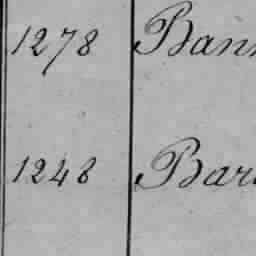 1278 Bann
1248 Bar